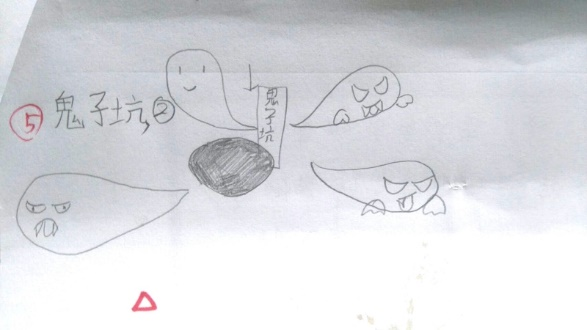 ⑤ 鬼子坑②
鬼子坑